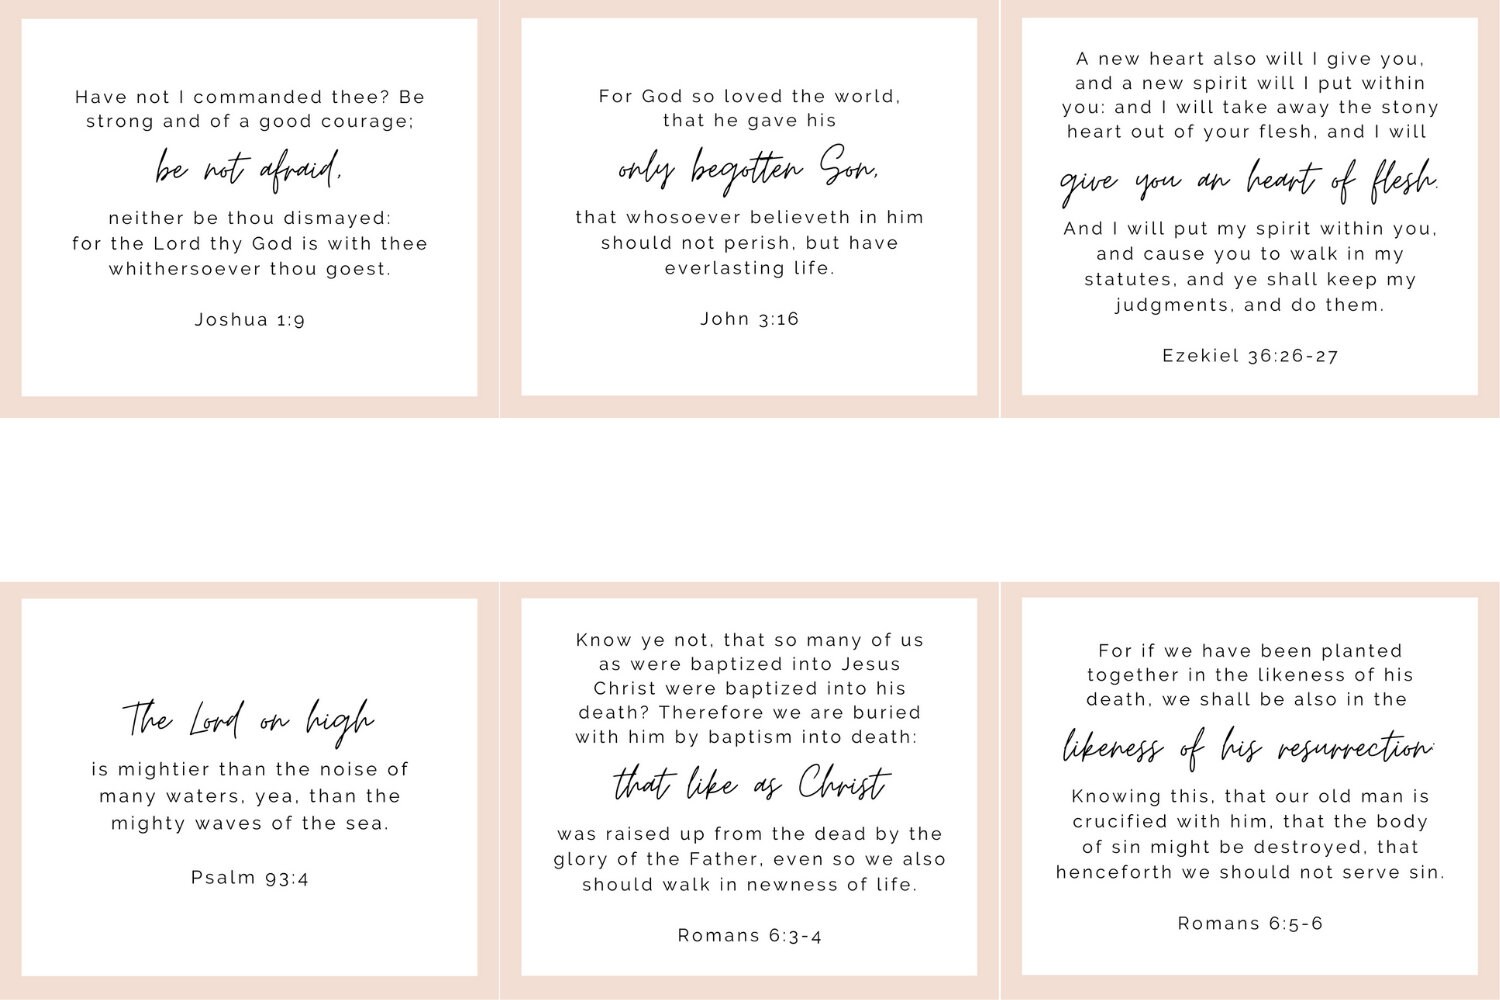 Have not I commanded thee? Be
strong and of a good courage;
be not afraid,
neither be thou dismayed:
for the Lord thy God is with thee
whithersoever thou goest.
Joshua 1:9
For God so loved the world,
that he gave his
only begotten Son,
that whosoever believeth in him
should not perish, but have
everlasting life.
John 3:16
A new heart also will I give you,
and a new spirit will I put within
you: and I will take away the stony
heart out of your flesh, and I will
give you an heart of flesh.
And I will put my spirit within you,
and cause you to walk in my
statutes, and ye shall keep my
judgments, and do them.
Ezekiel 36:26-27
The Lord on high
is mightier than the noise of
many waters, yea, than the
mighty waves of the sea.
Psalm 93:4
Know ye not, that so many of us
as were baptized into Jesus
Christ were baptized into his
death? Therefore we are buried
with him by baptism into death:
that like as Christ
was raised up from the dead by the
glory of the Father, even so we also
should walk in newness of life.
Romans 6:3-4
For if we have been planted
together in the likeness of his
death, we shall be also in the
likeness of his resurrection:
Knowing this, that our old man is
crucified with him, that the body
of sin might be destroyed, that
henceforth we should not serve sin.
Romans 6:5-6